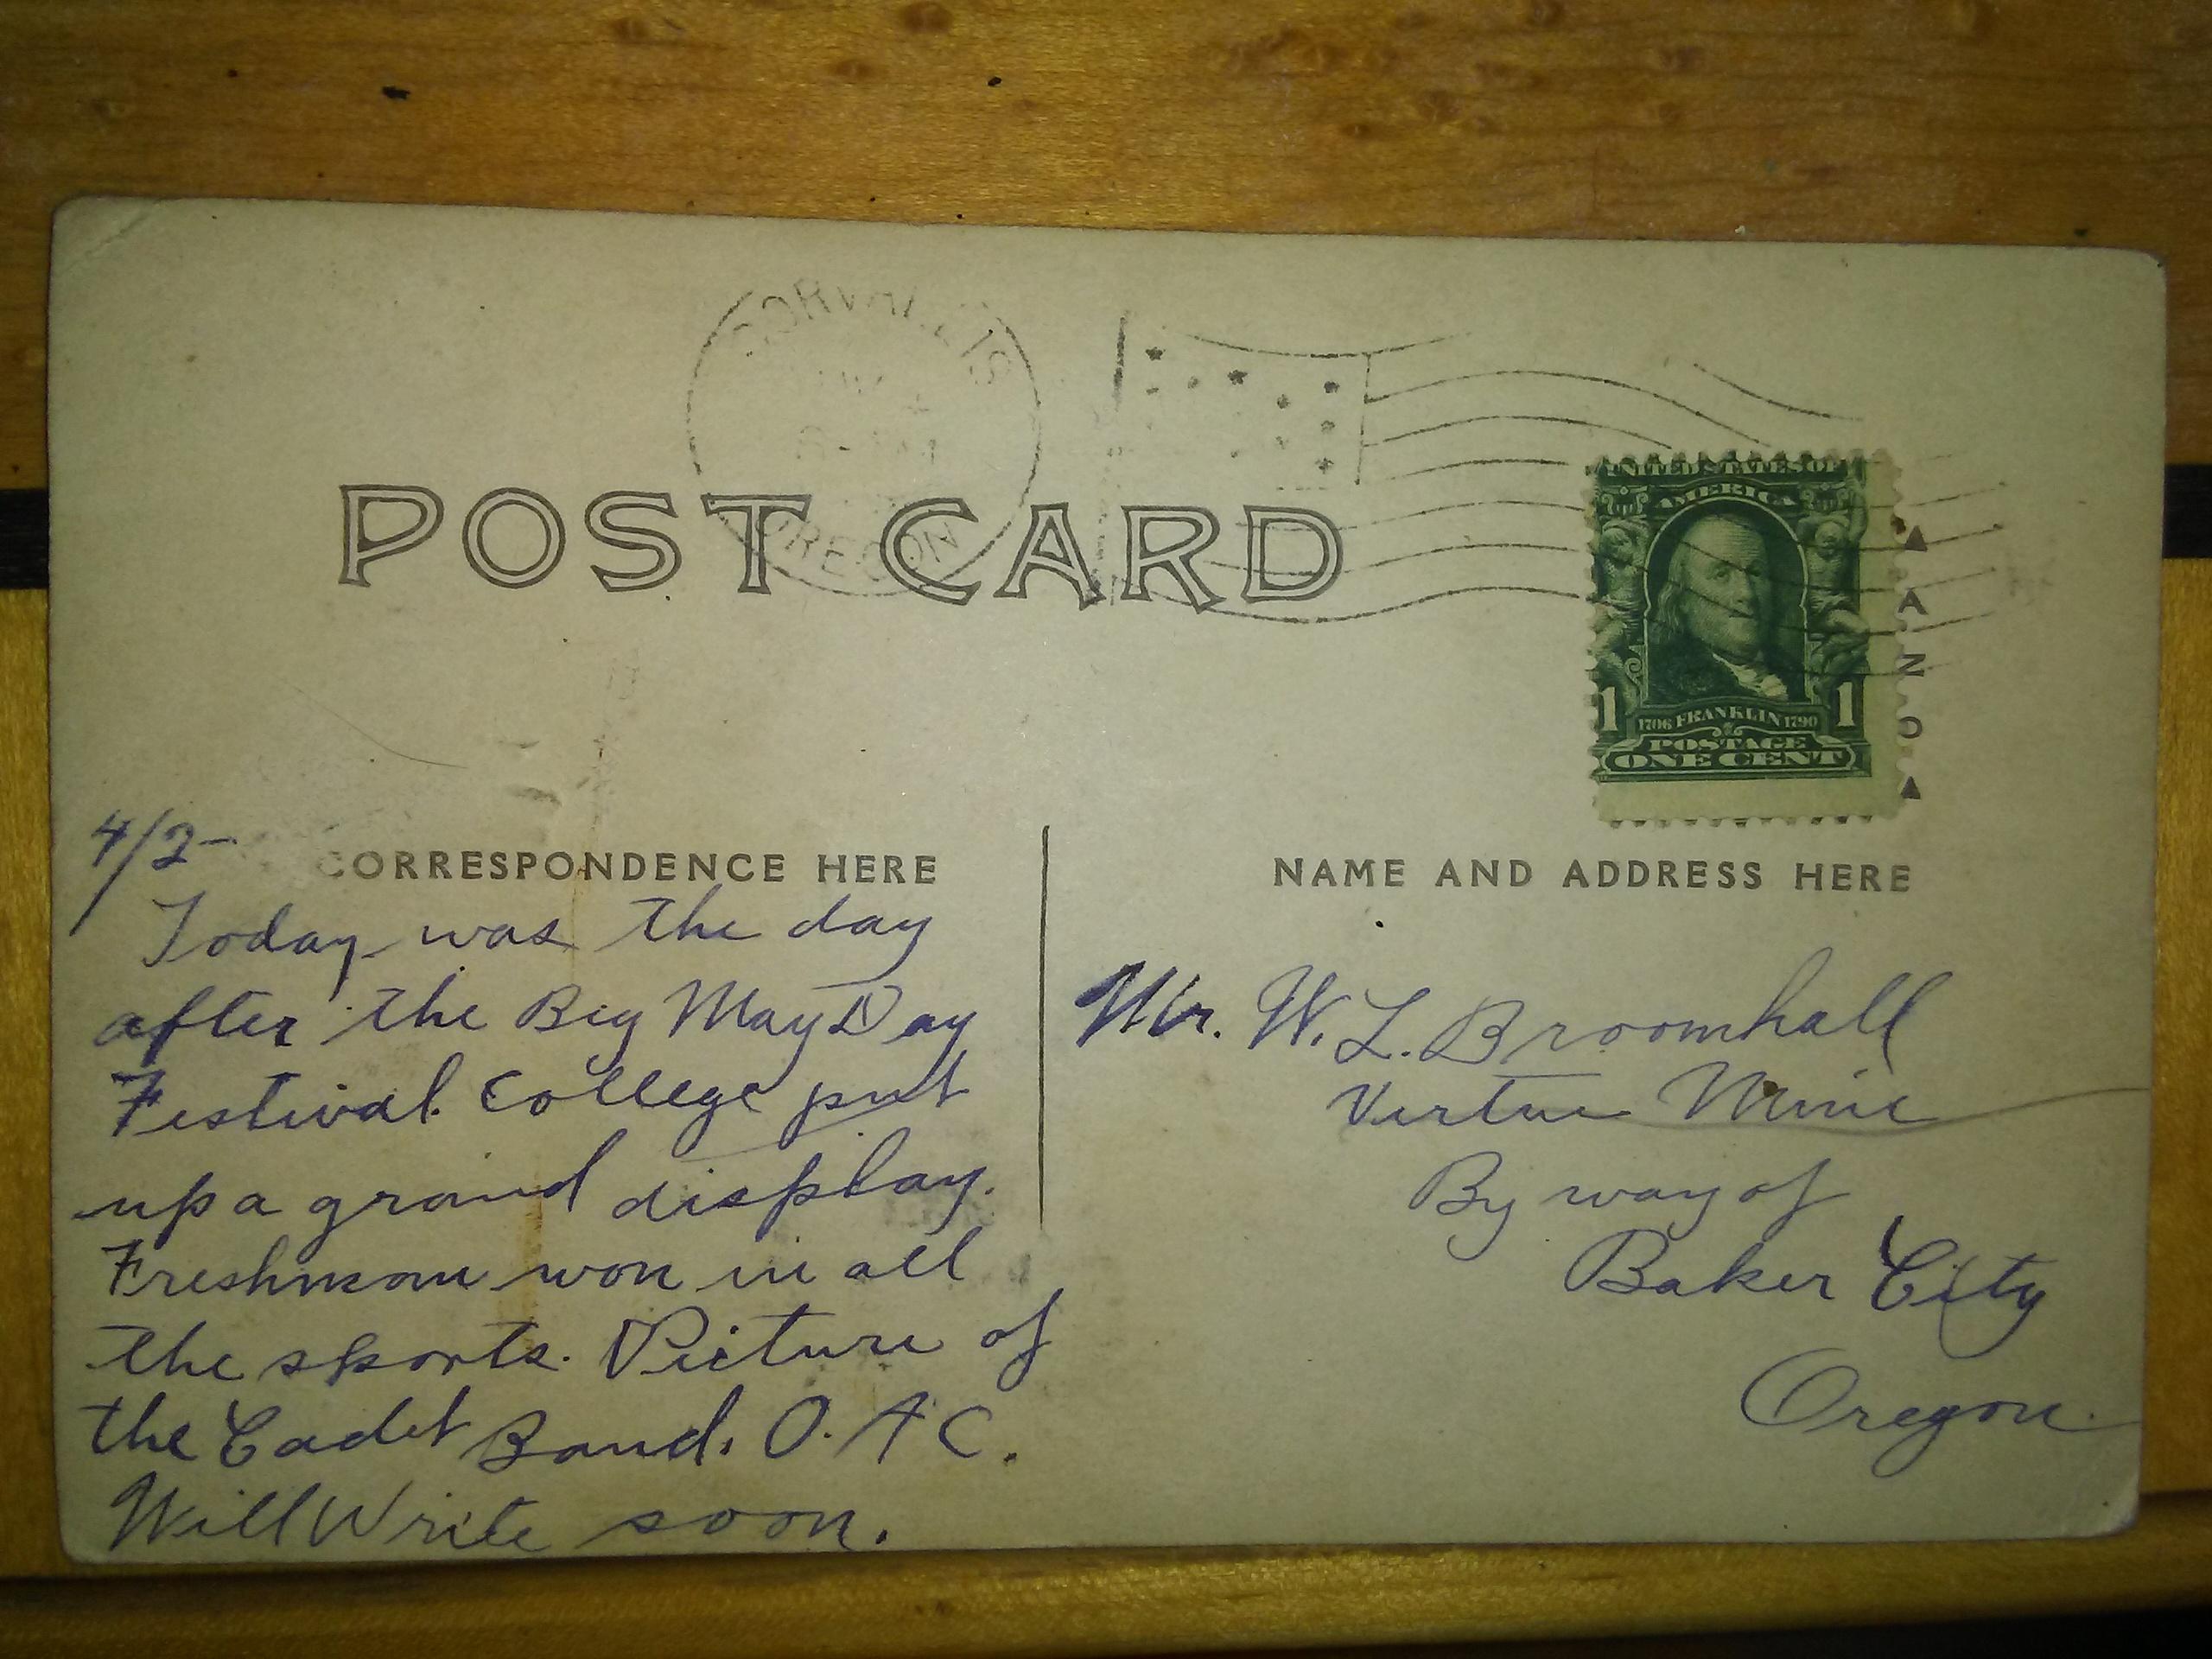 CORVALLIS
OREGON
POST CARD
UNITED STATES OF
AMERICA
1 1706 FRANKLIN 1790 1
POSTAGE
ONE CENT
▲ A Z O ▲
4/2-
CORRESPONDENCE HERE
NAME AND ADDRESS HERE
Today was the day
after the Big May Day
Festival. College put
up a grand display.
Freshmam won in all
the sports. Picture of
the Cadet Band. O. A C.
Will Write soon.
Mr. W. L. Broomhall
Virtue Mine
By way of
Baker City
Oregon.